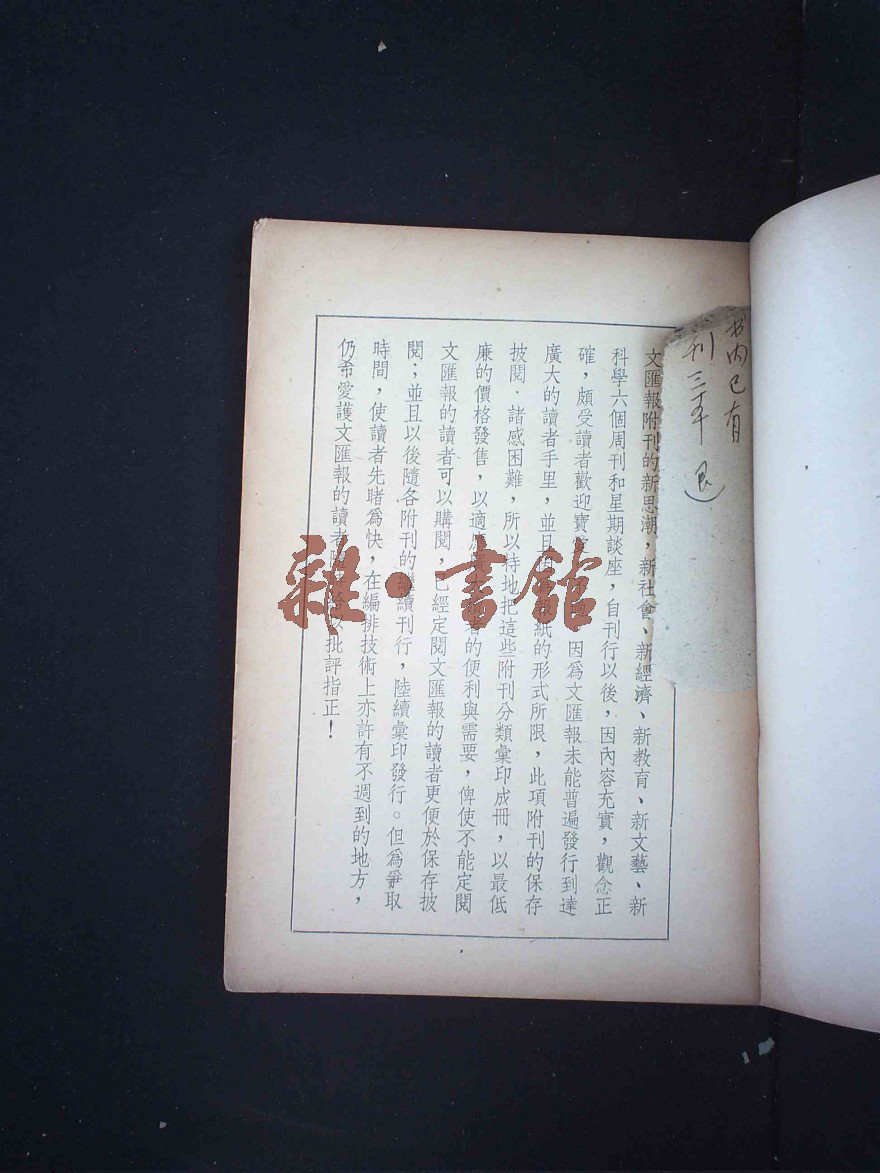 文匯報附刊的新思潮，新社會、新經濟、新教育、新文藝、新
科學六個周刊和星期談座，自刊行以後，因內容充實，觀念正
確，頗受讀者歡迎寶 因爲文匯報未能普遍發行到達
廣大的讀者手里，並且 紙的形式所限，此項附刊的保存
披閱、諸感困難，所以特地把這些附刊分類彙印成冊，以最低
廉的價格發售，以適 者的便利與需要，俾使不能定閱
文匯報的讀者可以購閱，已經定閱文匯報的讀者更便於保存披
閱；並且以後隨各附刊的繼續刊行，陸續彙印發行。但爲爭取
時間，使讀者先睹爲快，在編排技術上亦許有不週到的地方，
仍希愛護文匯報的讀者 批評指正！
书内已有
刊三
雜·書館